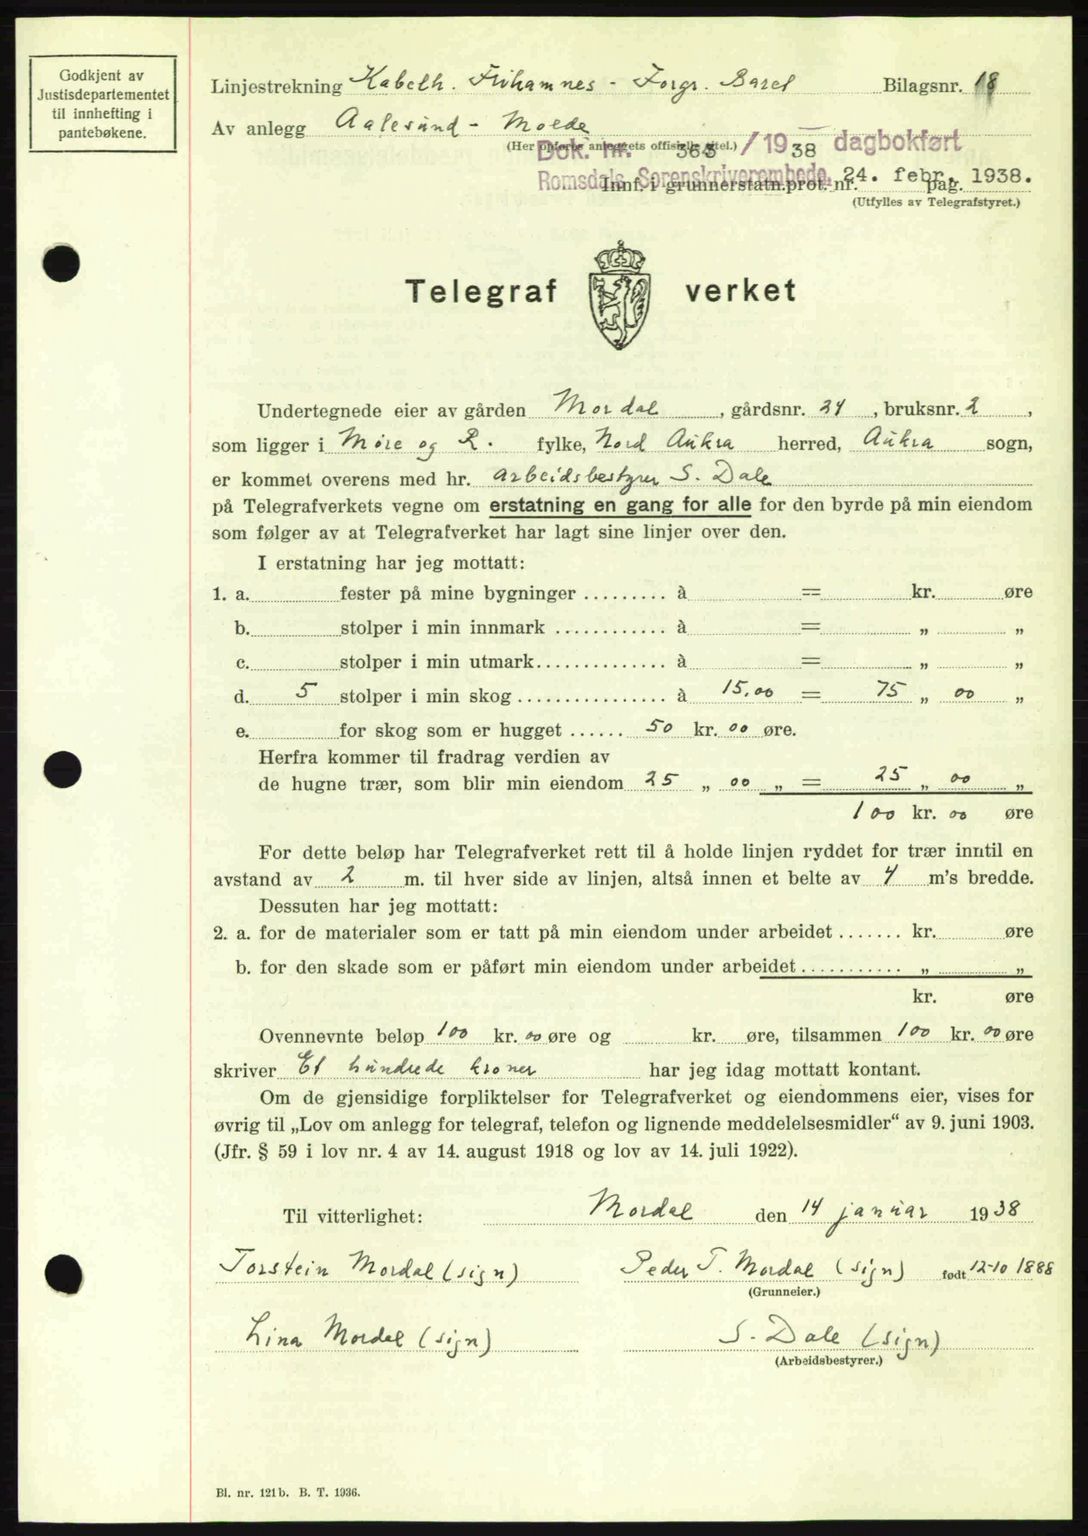 Godkjent av
Justisdepartementet
til innhefting i
pantebøkene.
Linjestrekning Kabelh. - Forgr. Bilagsnr. 18
Av anlegg Aalesund - Molde
(Her opføres anleggets offisielle titel.)
Dok. nr. 365 / 1938 dagbokført
Romsdals Sorenskriverembede, 24. febr. 1938.
Innf. i grunnerstatn.prot. nr. pag.
(Utfylles av Telegrafstyret.)
Telegraf verket
Undertegnede eier av gården Mordal, gårdsnr. 24, bruksnr. 2,
som ligger i Møre og R. fylke, Nord Aukra herred, Aukra sogn,
er kommet overens med hr. arbeidsbestyrer S. Dale
på Telegrafverkets vegne om erstatning en gang for alle for den byrde på min eiendom
som følger av at Telegrafverket har lagt sine linjer over den.
I erstatning har jeg mottatt:
1. a. fester på mine bygninger ......... à = kr. øre
b. stolper i min innmark ............ à = „ „
c. stolper i min utmark.............. à = „ „
d. 5 stolper i min skog ................ à 15,00 = 75 „ 00 „
e. for skog som er hugget ...... 50 kr. 00 øre.
Herfra kommer til fradrag verdien av
de hugne trær, som blir min eiendom 25 „ 00 „ = 25 „ 00 „
100 kr. 00 øre
For dette beløp har Telegrafverket rett til å holde linjen ryddet for trær inntil en
avstand av 2 m. til hver side av linjen, altså innen et belte av 4 m's bredde.
Dessuten har jeg mottatt:
2. a. for de materialer som er tatt på min eiendom under arbeidet ....... kr. øre
b. for den skade som er påført min eiendom under arbeidet ........... „ „
kr. øre
Ovennevnte beløp 100 kr. 00 øre og kr. øre, tilsammen 100 kr. 00 øre
skriver Et hundrede kroner har jeg idag mottatt kontant.
Om de gjensidige forpliktelser for Telegrafverket og eiendommens eier, vises for
øvrig til „Lov om anlegg for telegraf, telefon og lignende meddelelsesmidler“ av 9. juni 1903.
(Jfr. § 59 i lov nr. 4 av 14. august 1918 og lov av 14. juli 1922).
Til vitterlighet: Mordal den 14 januar 1938
Torstein Mordal (sign) Peder T. Mordal (sign) født 12-10 1888
(Grunneier.)
Lina Mordal (sign) S. Dale (sign)
(Arbeidsbestyrer.)
Bl. nr. 121 b. B. T. 1936.